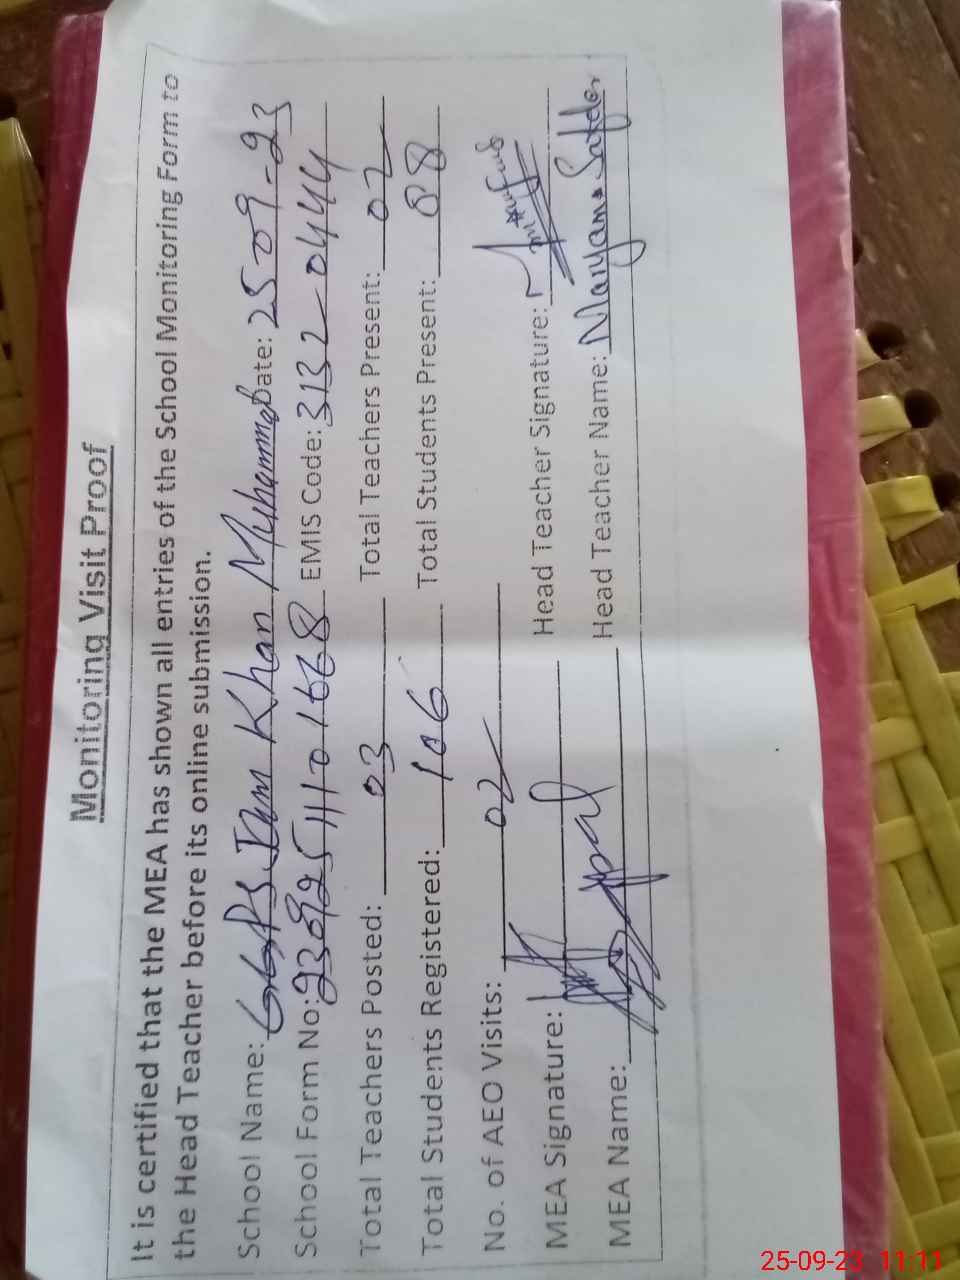 Monitoring Visit Proof
It is certified that the MEA has shown all entries of the School Monitoring Form to
the Head Teacher before its online submission.
School Name: GGPS Jam Khan Muhammad Date: 25-09-23
School Form No: EMIS Code: 31320444
Total Teachers Posted: 03 Total Teachers Present: 02
Total Students Registered: 106 Total Students Present: 88
No. of AEO Visits: 02
MEA Signature: Head Teacher Signature:
MEA Name: Head Teacher Name: Maryam Safder
25-09-23 11:11